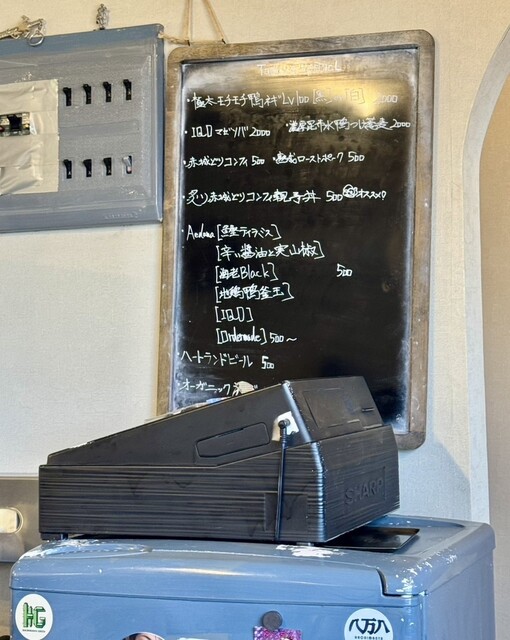 ・極太モチモチ鴨ネギLv100 2000
・IQD マゼソバ 2000 ・濃厚昆布水鴨つけ蕎麦 2000
・赤城どりコンフィ 500 ・熟成ローストポーク 500
・炙り赤城どりコンフィ親子丼 500 オススメ
・Aedama [鰹ティラミス]
[辛い醤油と実山椒]
[海老Black] 500
[地鶏鴨釜玉]
[IQD]
[Ordermade] 500～
・ハートランドビール 500
・オーガニック
SHARP
HG
八万八